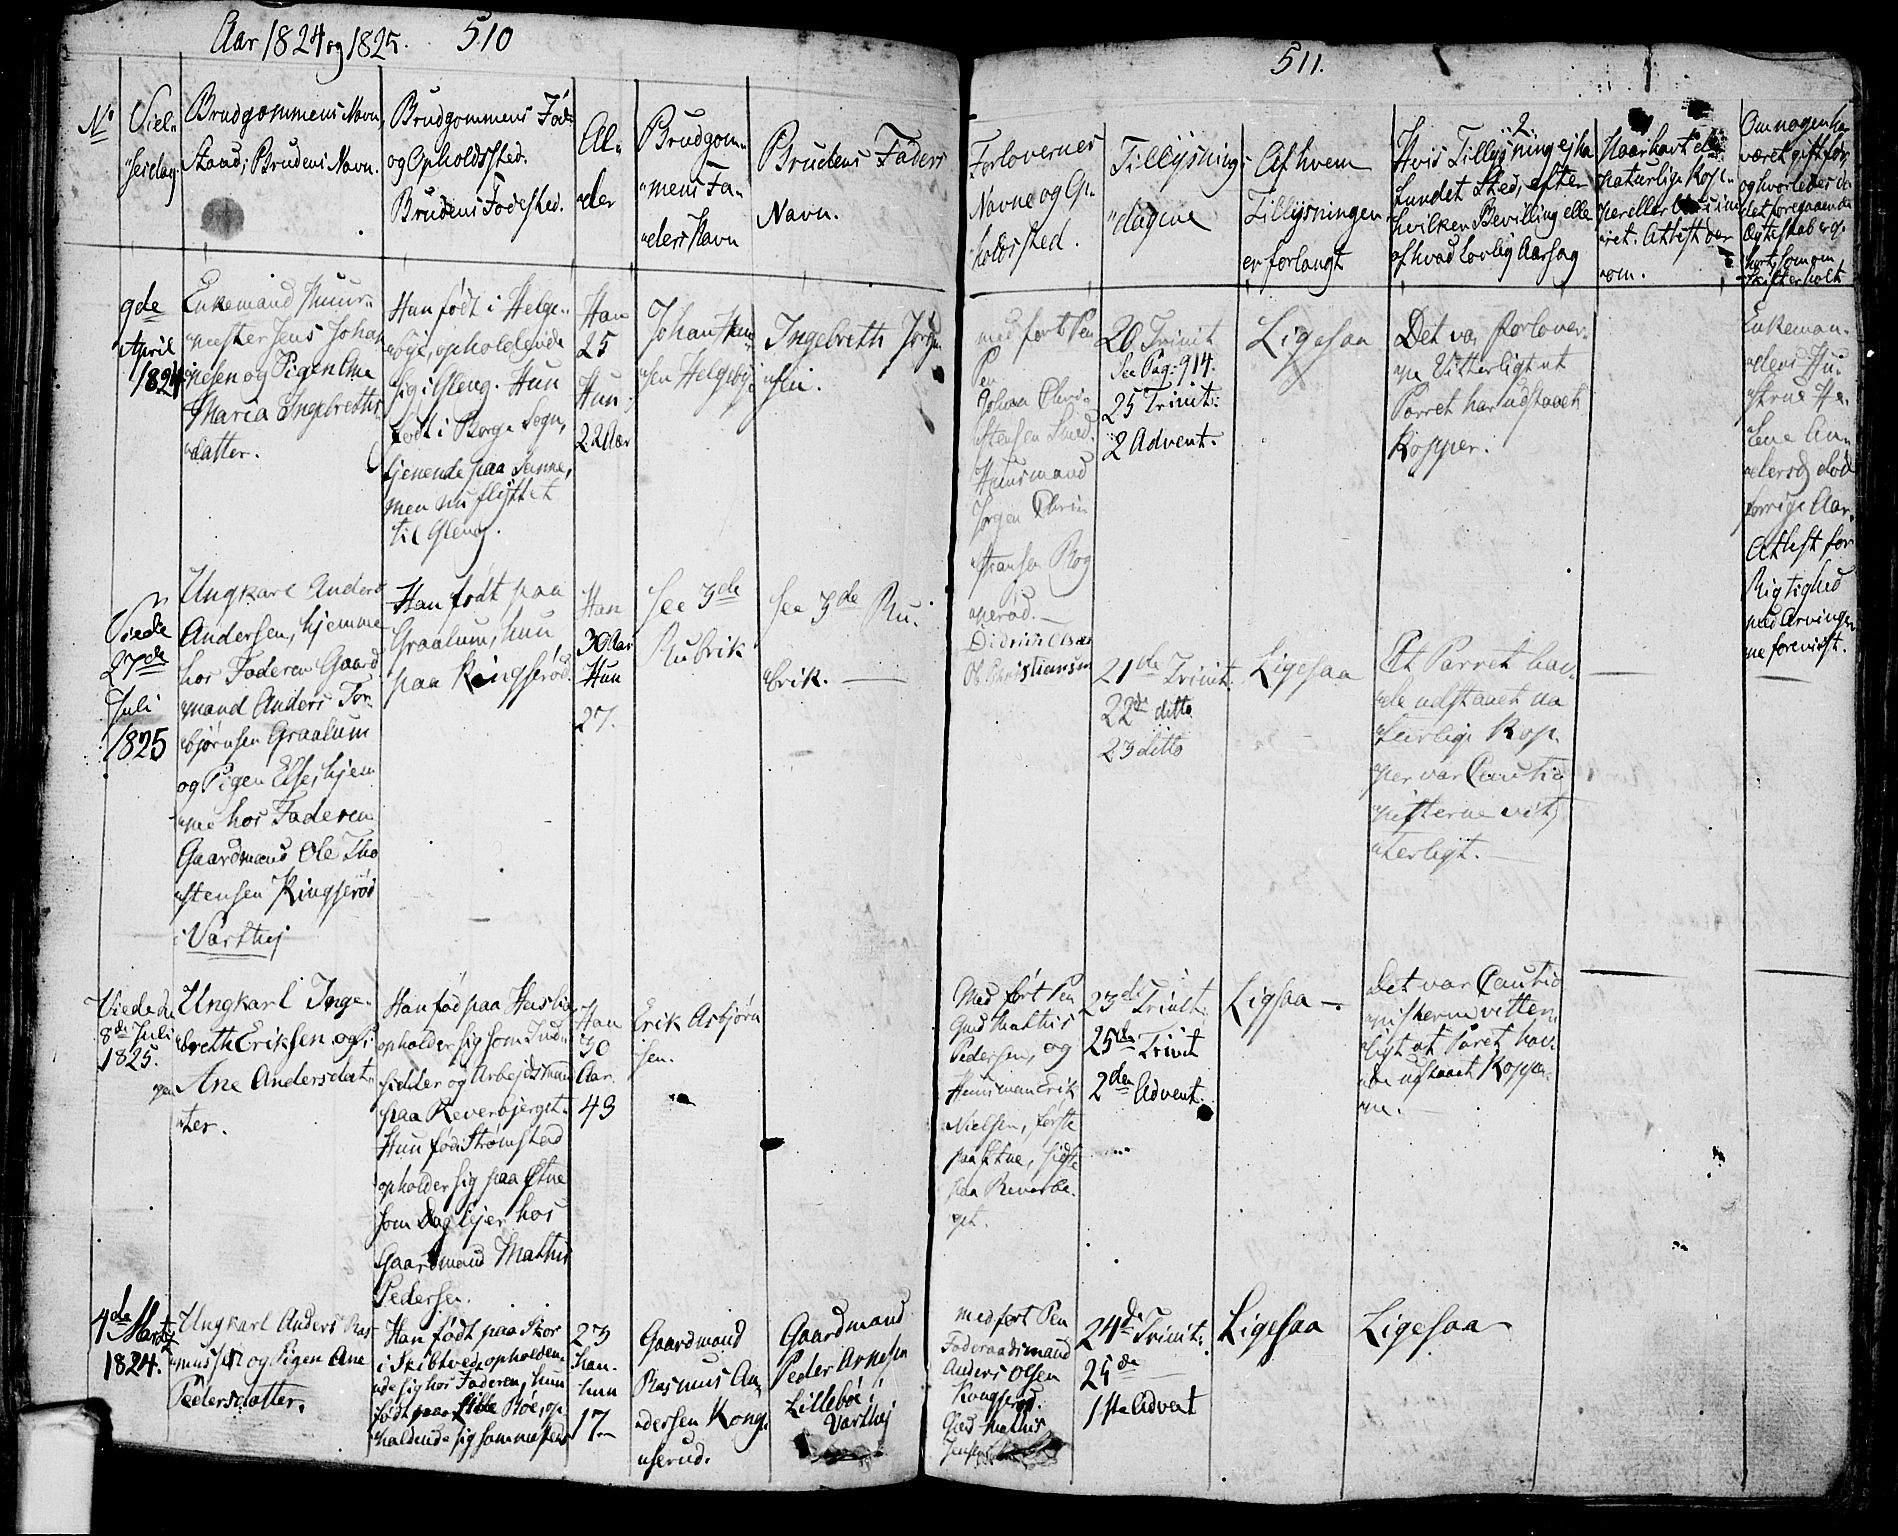 Aar 1824 og 1825. 510
No
Viel-
seidag
Brudgommens Navn,
Stand; Brudens Navn.
Brudgommens Fød-
og Opholdsted.
Brudens Fødested.
Al-
der
Brudgom-
mens Fa-
ders Navn
Brudens Faders
Navn.
9de
April
1824
Enkemand Muur-
mester Jens Johan-
nesen og Pigen Ane
Maria Ingebreths
datter.
Han født i Helge-
opholdende
sig i Gleng. Hun
født i Borge Sogn,
tjenende paa
men nu flyttet
til Gleng.
Han
25
Hun
22 Aar
Johan
sen
Ingebreth Jørgen
sen.
Viede
27de
Juli
1825
Ungkarl Anders
Andersen, hjemme
hos Faderen Gaard
mand Anders Tor-
bjørnsen Graalum
og Pigen Else, hjem
me hos Faderen
Gaardmand Ole Tho
stensen Kingserød
i Varthej
Han født paa
Graalum, hun
paa Kingserød.
Han
30 Aar
Hun
27.
See 3de
Rubrik
see 3de Ru-
brik. —
Viede den
8de Juli
1825.
Ungkarl Inge-
breth Eriksen og Pi
gen Ane Andersdat-
ter.
Han fød paa
opholder sig som Ind-
sidder og Arbejdsmand
paa Reverbjerget.
Hun fød Strømstad
opholder sig paa
som Daglejer hos
Gaardmand Mathis
Pedersen.
Han
30
Aar
43
Erik Asbjørn
sen.
4de Martz
1824.
Ungkarl Anders Ras-
mussen og Pigen Ane
Pedersdatter.
Han født paa Skor
i Skibtved, opholden-
de sig hos Faderen, hun
født paa Lille Bøe, op
holdende sig sammesteds
23
han-
hun
17-
Gaardmand
Rasmus An-
dersen Kong-
serud.
Gaardmand
Peder Arnesen
Lillebøe i
Varthej
511.
Forlovernes
Navne og Op-
holdssted.
Tillysnings-
dagene
Af hvem
Tillysningen
er forlangt
2
Hvis Tillysning ej ha
fundet Sted, efter
hvilken Bevilling elle
af hvad Lovlig Aarsag
Haar havt de
naturlige Kop-
per eller
ret. Attest der
om.
Om nogen har
været gift før,
og hvorledes da
det foregaaende
Ægteskab er op-
hørt, som om
Skifte holdt
med ført Pen
Johan Chri-
stensen
Huusmand
Jørgen Chri-
stiansen Rog
nerød. —
20 Trinit
See Pag: 914.
25 Trinit:
2 Advent.
Ligesaa
Det var Forlover-
ne Vitterligt at
Parret har udstaaet
Kopper.
Enkeman-
dens Hu-
strue He-
lene An-
dersd død
forrige Aar.
Attest for
Rigtighed
med Arvinger
ne foreviist.
Didrich
Ole Christiansen
21de Trinit.
22de ditto
23 ditto
Ligesaa
At Parret hav-
de udstaaet na
turlige Kop-
per var Cautio
nisterne vit-
terligt. —
Med ført Pen
Gmd Mathis
Pedersen, og
Huusman Erik
Nielsen, første
paa , sidste
paa Reverbe-
get.
23de Trinit:
25de Trinit
2den Advent.
Ligsaa —
Det var Cautio
nisterne vitter-
ligt at Paret hav-
de udstaaet Kopper-
ne. —
med ført Pen
Føderaadsmand
Anders Olsen
Kongserød.
Gmd Mathis
Jensen
24de Trinit:
25de
1ste Advent
Ligesaa
Ligesaa